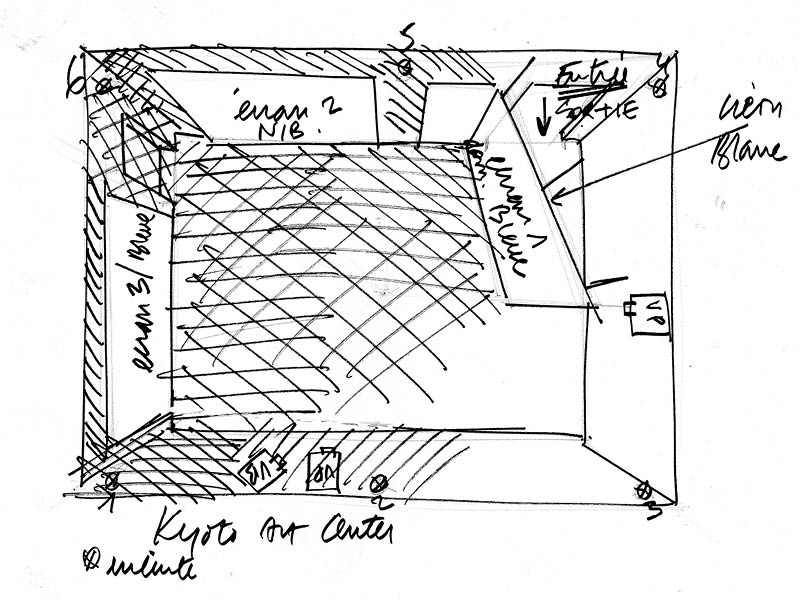 5
6
4
Entrée
Sortie
écran 2
N/B.
néon
Blanc
écran 1
Blanc
écran 3/Blanc
VP
VP
VP
1
2
3
Kyoto Art Center
enceinte